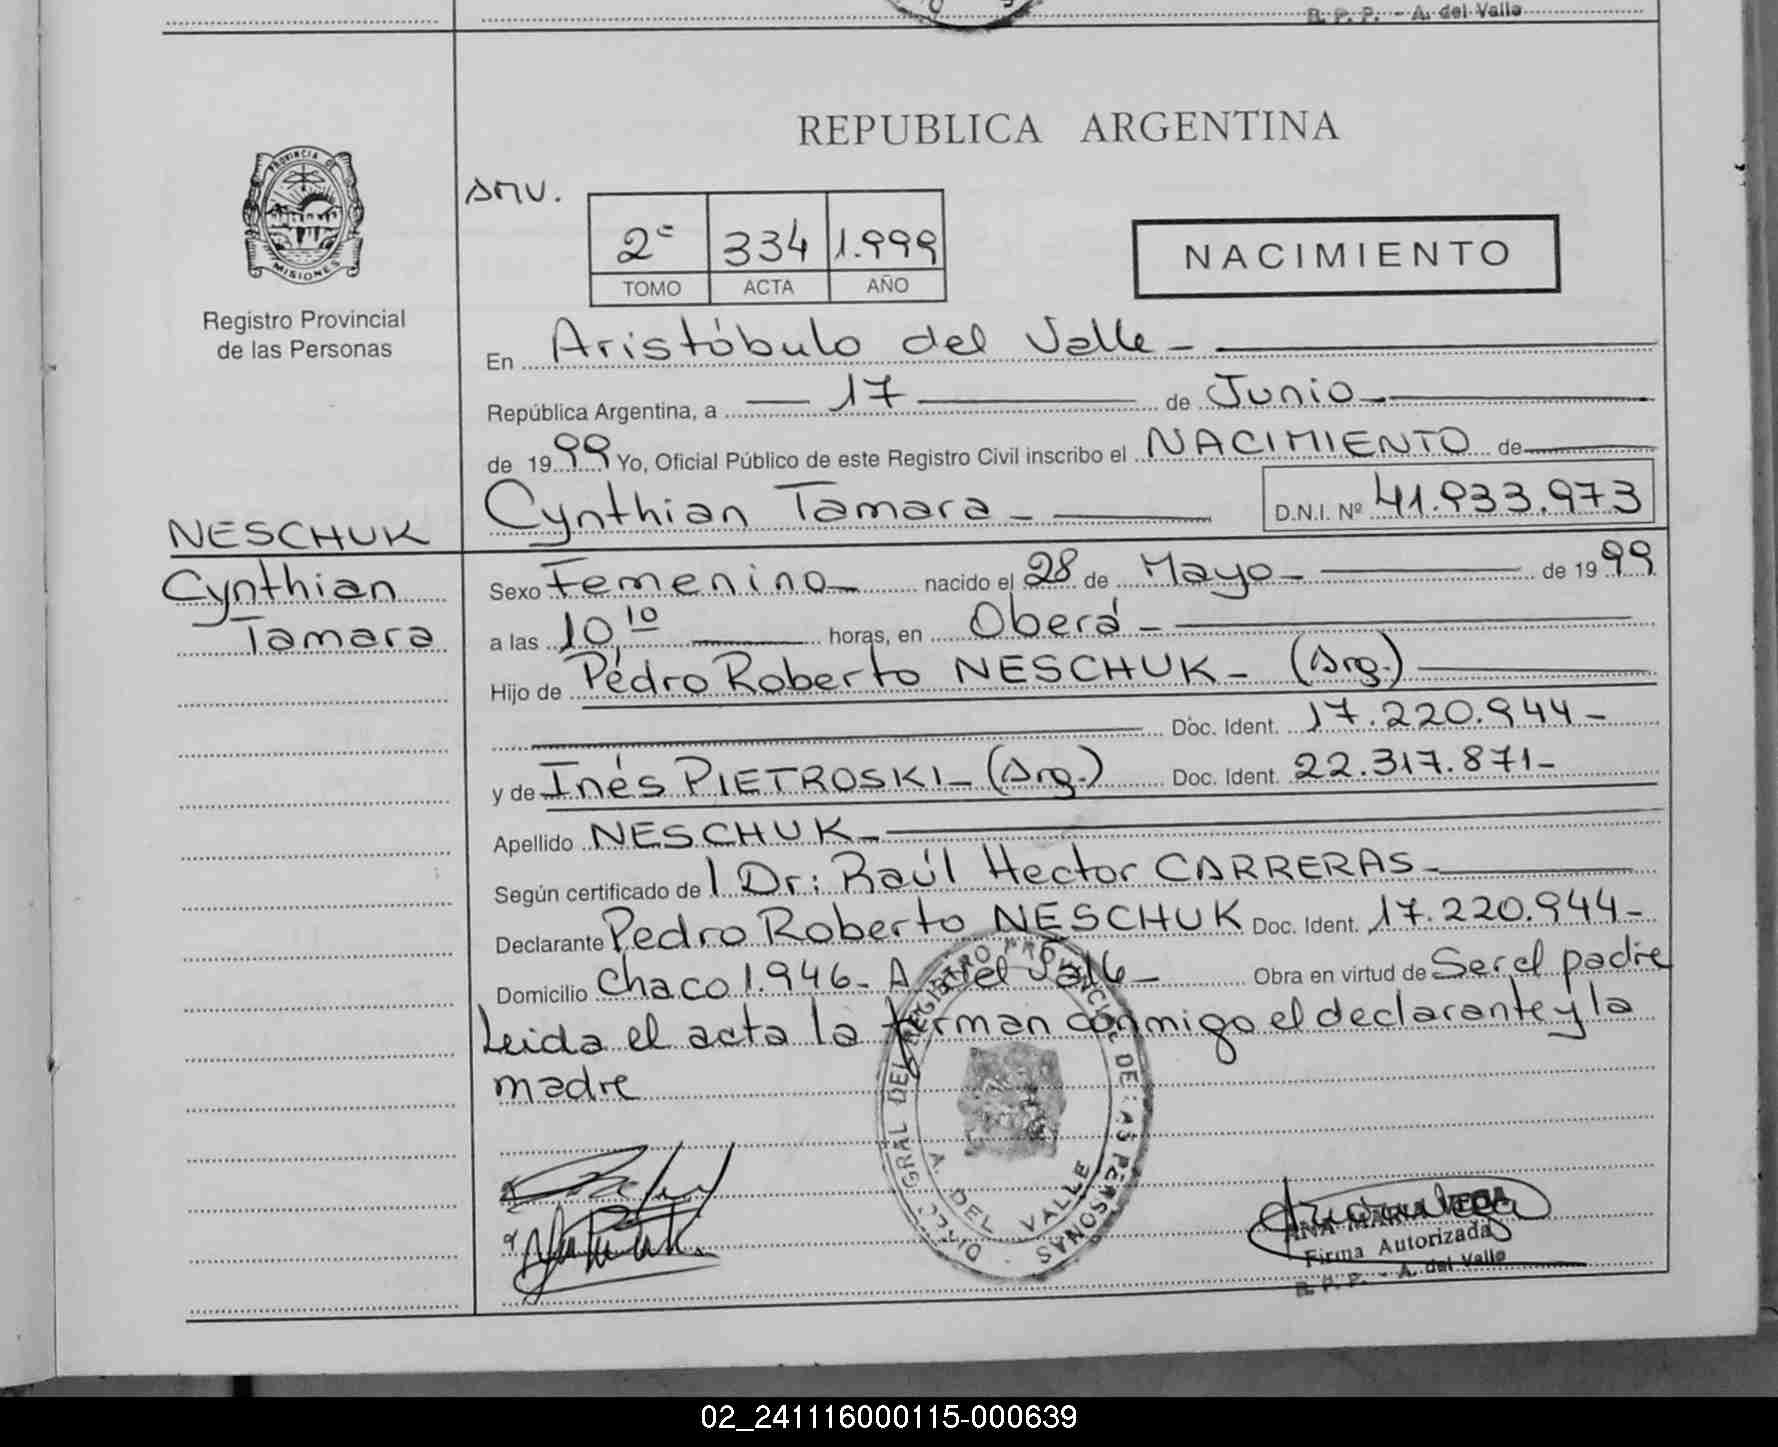 R. P. P. - A. del Valle
REPUBLICA ARGENTINA
PROVINCIA DE MISIONES
Registro Provincial
de las Personas
AMV.
2º 334 1.999
TOMO ACTA AÑO
NACIMIENTO
En Aristóbulo del Valle -
República Argentina, a 17 de Junio -
de 1999 Yo, Oficial Público de este Registro Civil inscribo el NACIMIENTO de
Cynthian Tamara - D.N.I. Nº 41.933.973
NESCHUK
Cynthian
Tamara
Sexo Femenino - nacido el 28 de Mayo - de 1999
a las 10,10 horas, en Oberá -
Hijo de Pedro Roberto NESCHUK - (Arg.)
Doc. Ident. 17.220.944 -
y de Inés PIETROSKI - (Arg.) Doc. Ident. 22.317.871 -
Apellido NESCHUK -
Según certificado de l Dr: Raúl Hector CARRERAS -
Declarante Pedro Roberto NESCHUK Doc. Ident. 17.220.944 -
Domicilio Chaco 1.946 - A. del Valle - Obra en virtud de Ser el padre
Leida el acta la firman conmigo el declarante y la
madre
DIREC. GRAL DEL REGISTRO PROVINCIAL DE LAS PERSONAS
A. DEL VALLE
ANA MARIA VEGA
Firma Autorizada
R. P. P. - A. del Valle
02_241116000115-000639